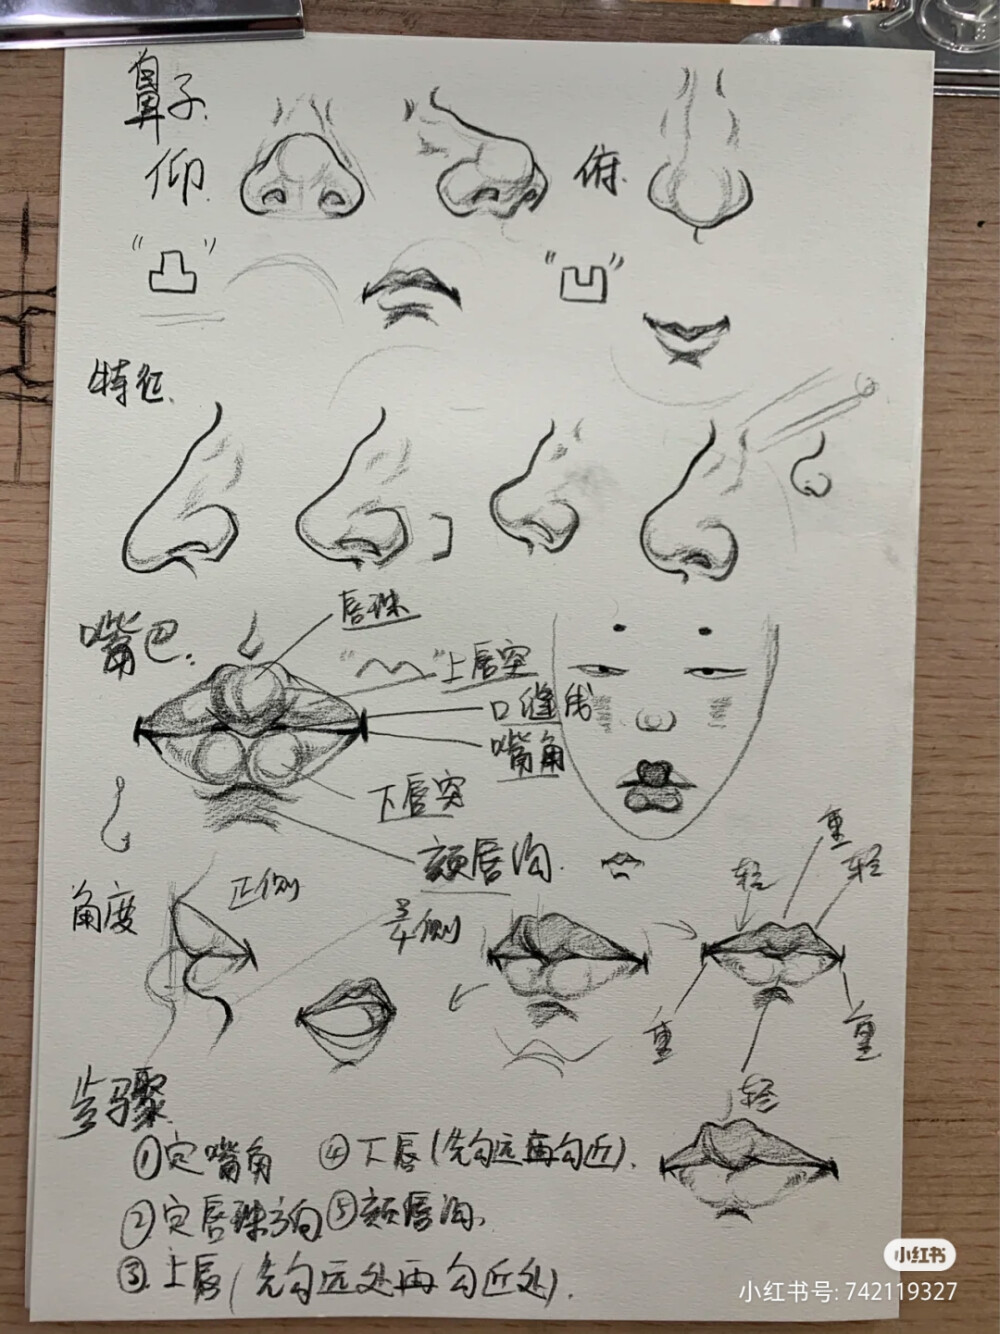 鼻子.
仰.
俯.
"凸"
"凹"
特征.
嘴巴:
唇珠
"上唇突
口缝线
嘴角
下唇突
颏唇沟.
角度
正侧
3/4侧
重
轻
轻
重
重
轻
步骤
①定嘴角 ④下唇(先勾远再勾近).
②定唇珠方向 ⑤颏唇沟.
③.上唇(先勾远处再勾近处).
小红书
小红书号: 742119327